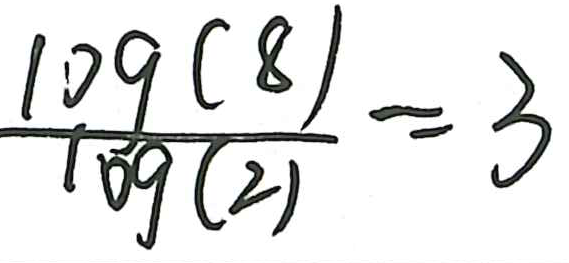 \frac{log(8)}{log(2)} = 3